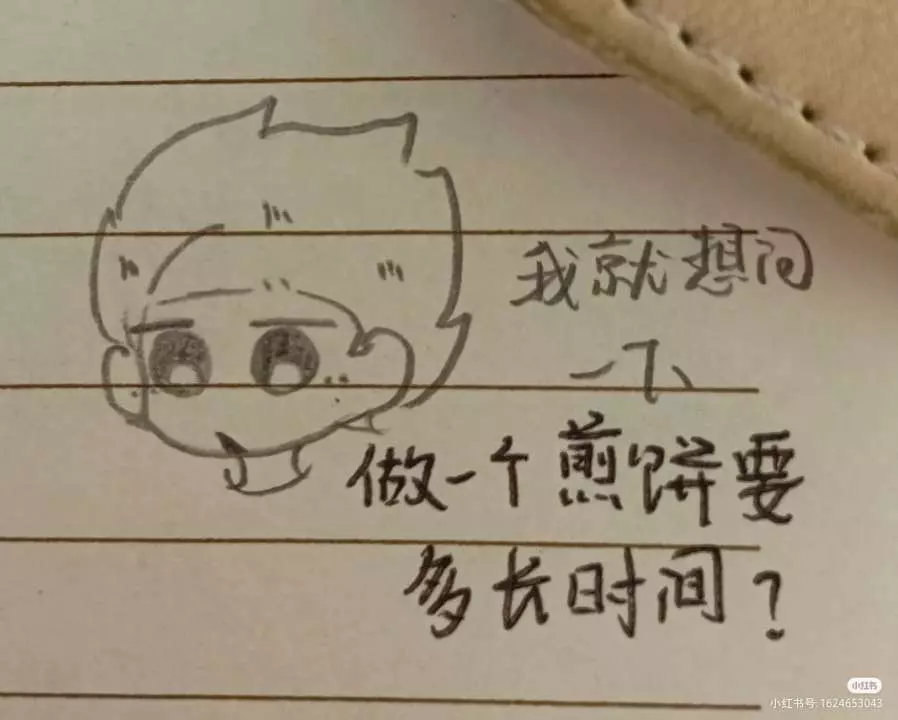 我就想问
一下
做一个煎饼要
多长时间?
小红书
小红书号:1624653043